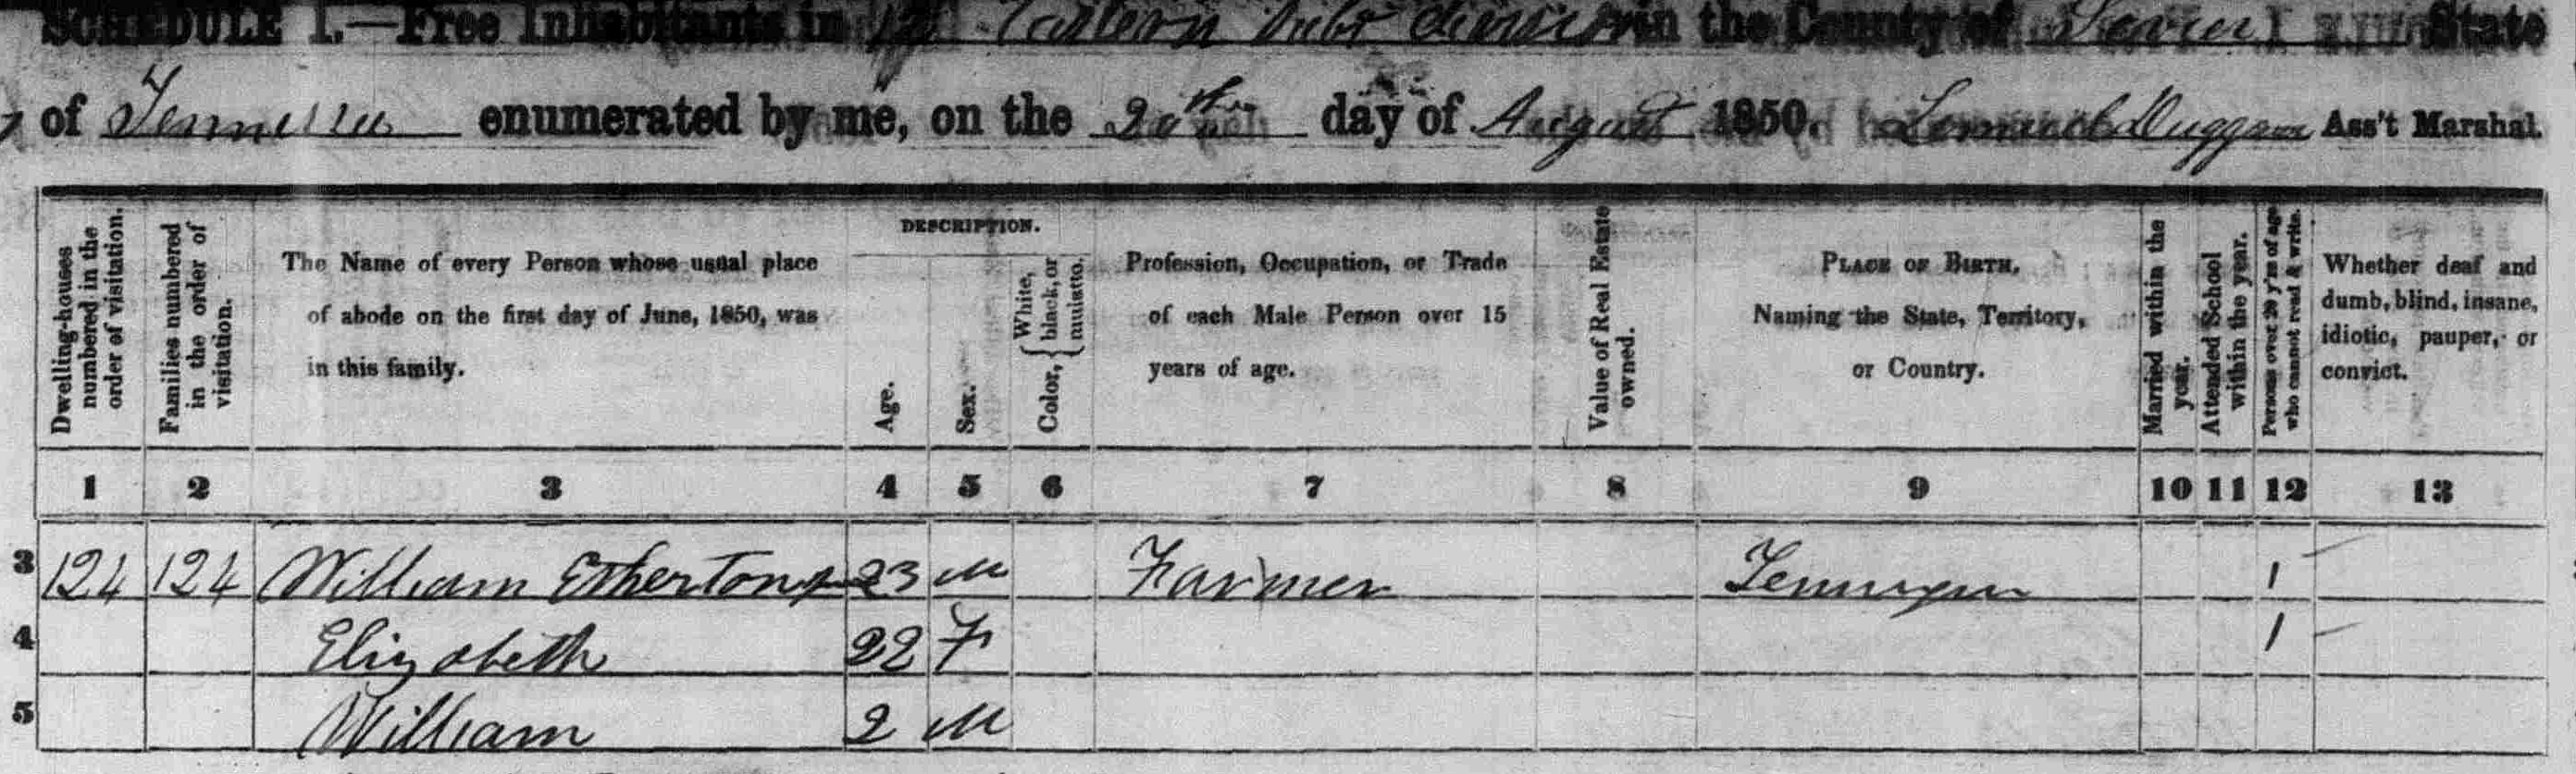 SCHEDULE I.—Free Inhabitants in 12 Eastern Sub Division in the County of Sevier State
of Tennessee enumerated by me, on the 20th day of August 1850. Lemuel Duggan Ass't Marshal.
Dwelling-houses numbered in the order of visitation.
Families numbered in the order of visitation.
The Name of every Person whose usual place of abode on the first day of June, 1850, was in this family.
DESCRIPTION.
Age.
Sex.
Color, { White, black, or mulatto.
Profession, Occupation, or Trade of each Male Person over 15 years of age.
Value of Real Estate owned.
PLACE OF BIRTH, Naming the State, Territory, or Country.
Married within the year.
Attended School within the year.
Persons over 20 y'rs of age who cannot read & write.
Whether deaf and dumb, blind, insane, idiotic, pauper, or convict.
1 2 3 4 5 6 7 8 9 10 11 12 13
3 124 124 William Etherton 23 M Farmer Tennessee 1
4 Elizabeth 22 F 1
5 William 2 M